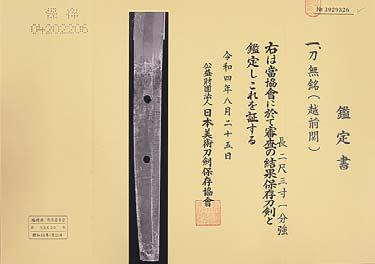 鑑定書
一、刀 無銘(越前関)
長 二尺三寸一分強
右は當協會に於て審査の結果保存刀剣と
鑑定しこれを証する
令和四年八月二十五日
公益財團法人 日本美術刀剣保存協會
№ 3029326
保存
04202206